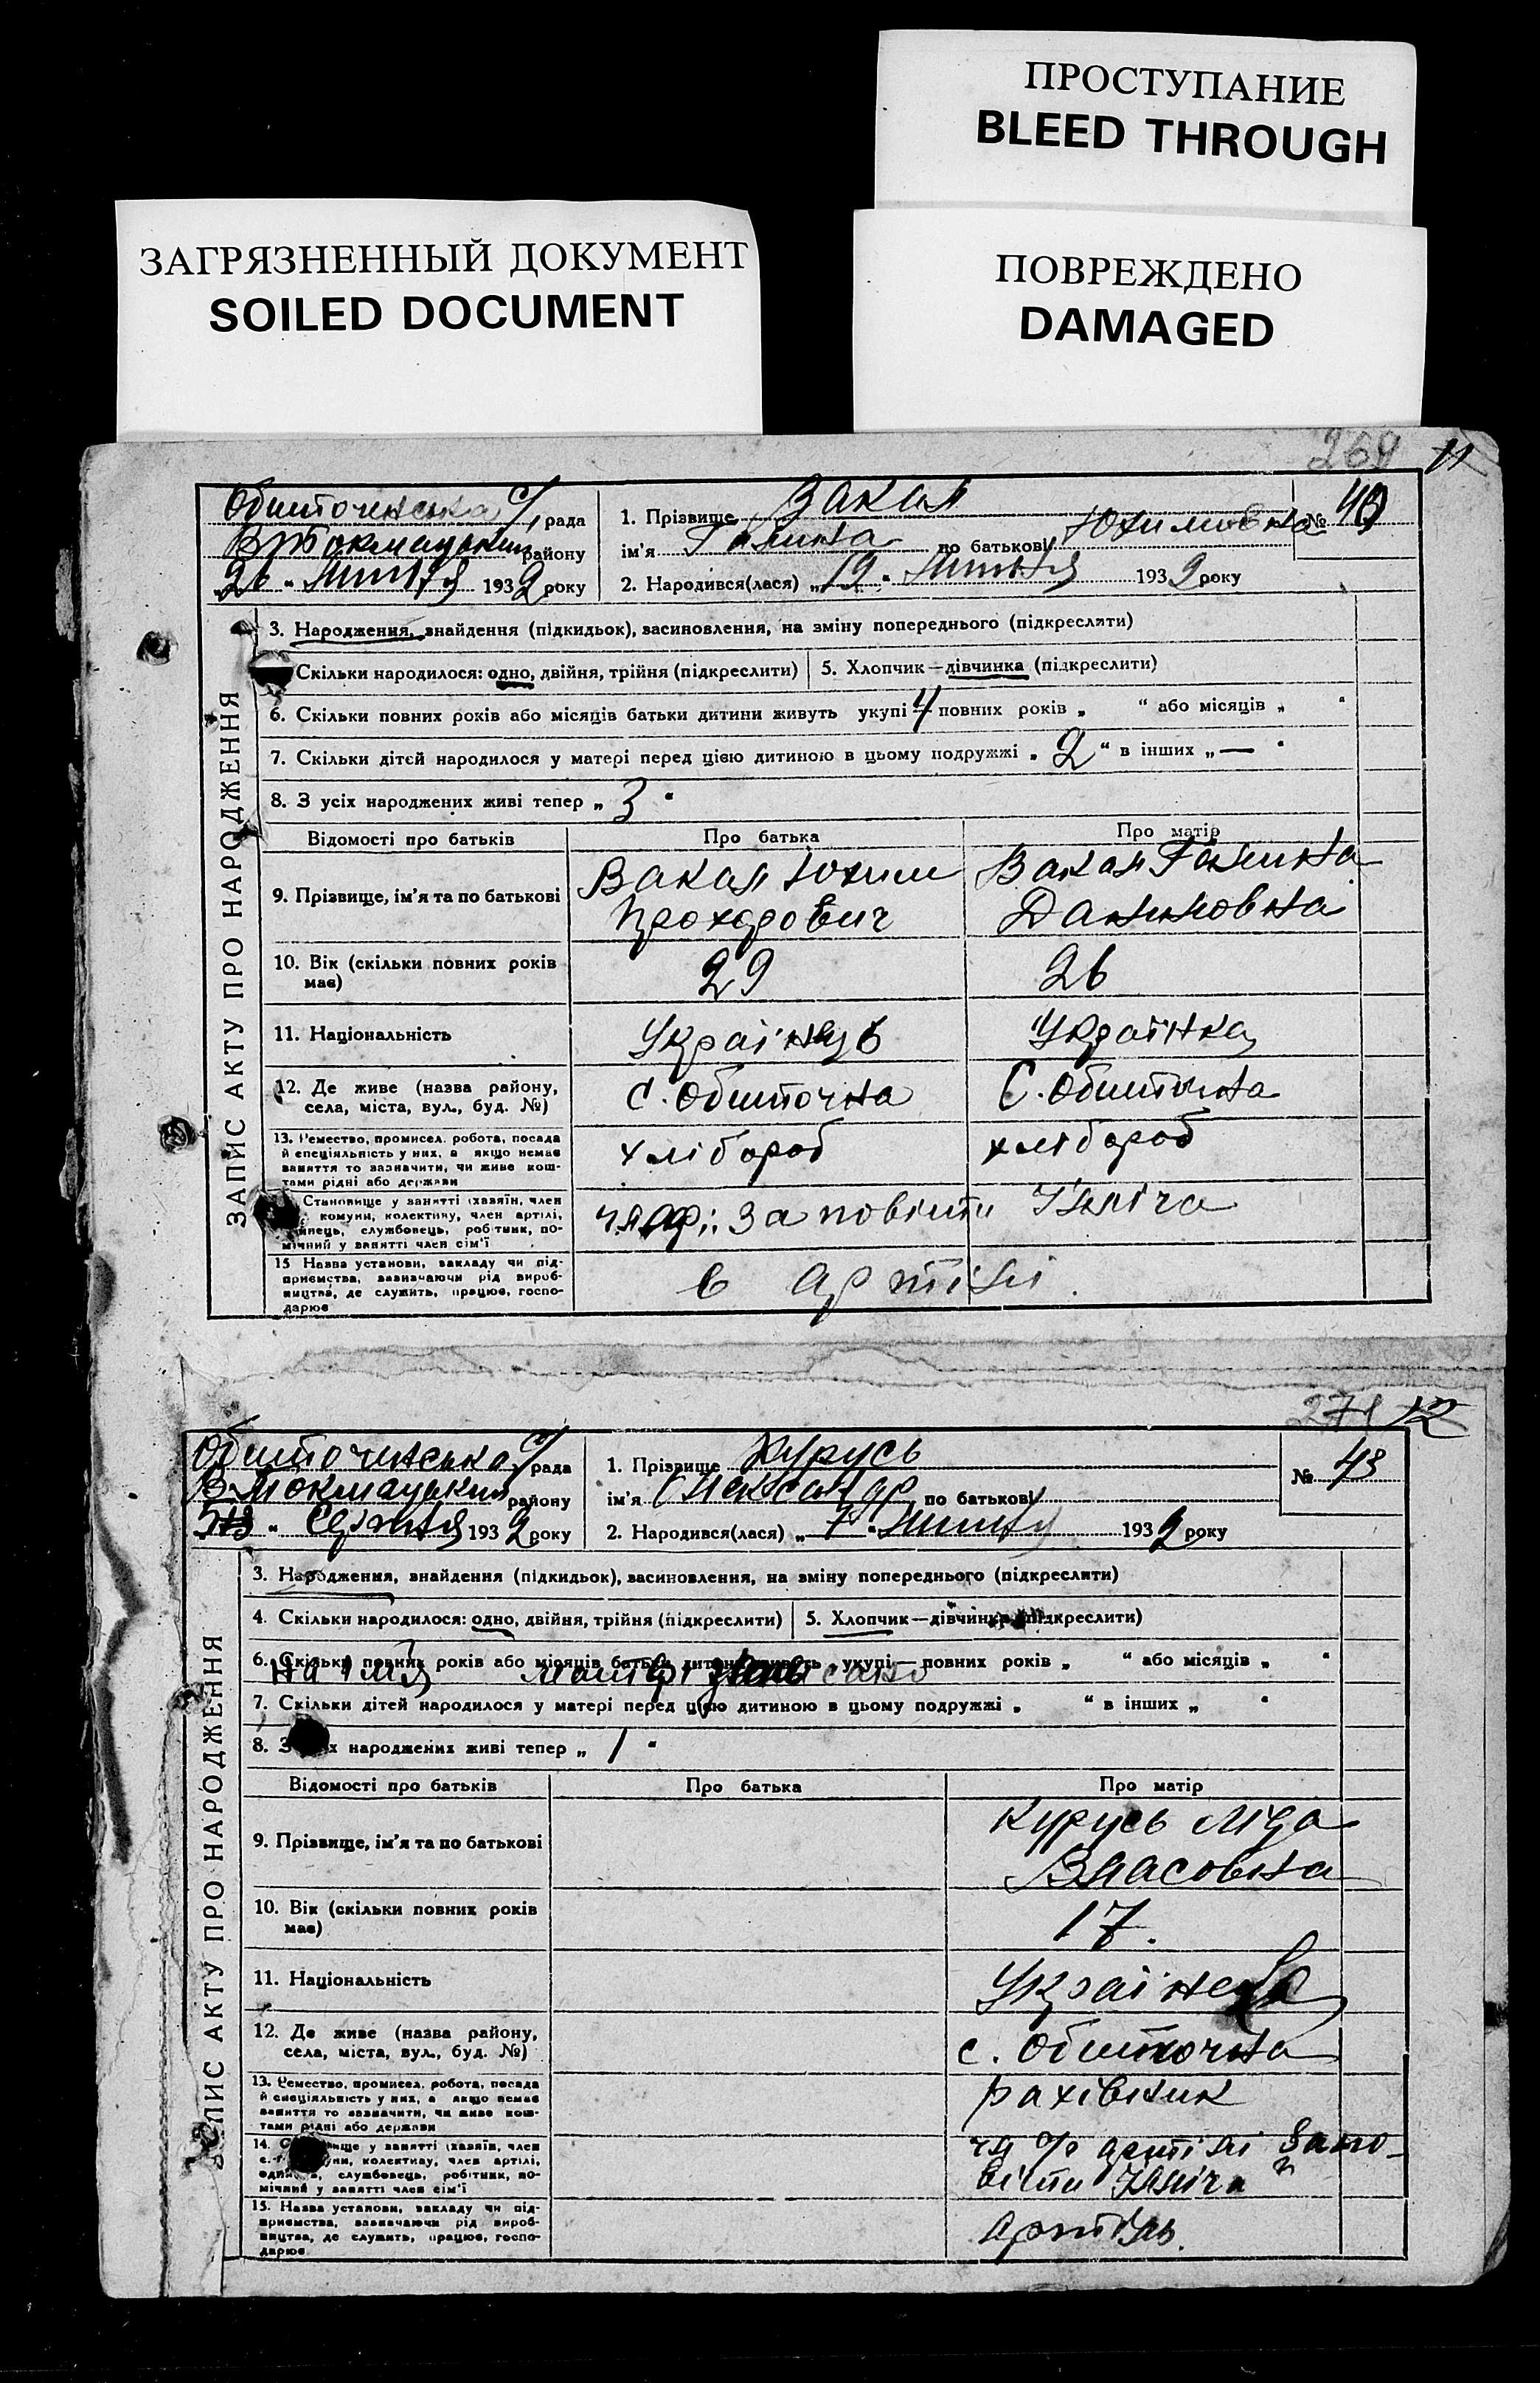 ПРОСТУПАНИЕ
BLEED THROUGH
ЗАГРЯЗНЕННЫЙ ДОКУМЕНТ
SOILED DOCUMENT
ПОВРЕЖДЕНО
DAMAGED
269 11
Обиточенська с/рада
В Токмацьким району
26 " липня 1932 року
1. Прізвище Закал
№ 40
ім'я Галина по батькові Юхимовна
2. Народився(лася) „19 " липня 1932 року
ЗАПИС АКТУ ПРО НАРОДЖЕННЯ
3. Народження, знайдення (підкидьок), засиновлення, на зміну попереднього (підкреслити)
Скільки народилося: одно, двійня, трійня (підкреслити) 5. Хлопчик—дівчинка (підкреслити)
6. Скільки повних років або місяців батьки дитини живуть укупі 4 повних років „ “ або місяців „ “
7. Скільки дітей народилося у матері перед цією дитиною в цьому подружжі „ 2 “ в інших „ — “
8. З усіх народжених живі тепер „ 3 “
Відомості про батьків Про батька Про матір
9. Прізвище, ім'я та по батькові
Вакал Юхим
Прохорович
Вакал Галина
Даниловна
10. Вік (скільки повних років має) 29 26
11. Національність Українець Українка
12. Де живе (назва району, села, міста, вул., буд. №) С. Обиточна С. Обиточна
13. Ремество, промисел, робота, посада
й спеціяльність у них, а якщо немає
заняття то зазначити, чи живе кош-
тами рідні або держави
хлібороб хлібороб
Становище у занятті (хазяїн, член
комуни, колективу, член артілі,
службовець, робітник, по-
мічний у занятті член сім'ї
заповіти Ілліча
15 Назва установи, закладу чи під-
приємства, зазначаючи рід вироб-
ництва, де служить, працює, госпо-
дарює
в артілі
271 12
Обиточенська с/рада
В Токмацьким району
5 " серпня 1932 року
1. Прізвище Курусь
№ 43
ім'я Олександр по батькові
2. Народився(лася) „ 7 " липня 1932 року
ЗАПИС АКТУ ПРО НАРОДЖЕННЯ
3. Народження, знайдення (підкидьок), засиновлення, на зміну попереднього (підкреслити)
4. Скільки народилося: одно, двійня, трійня (підкреслити) 5. Хлопчик—дівчинка (підкреслити)
6. Скільки повних років або місяців батьки дитини живуть укупі — повних років „ “ або місяців „ “
на ім'я матері записано
7. Скільки дітей народилося у матері перед цією дитиною в цьому подружжі „ “ в інших „ “
8. З усіх народжених живі тепер „ 1 “
Відомості про батьків Про батька Про матір
9. Прізвище, ім'я та по батькові
Курусь Ліда
Власовна
10. Вік (скільки повних років має) 17.
11. Національність Українка
12. Де живе (назва району, села, міста, вул., буд. №) с. Обиточна
13. Ремество, промисел, робота, посада
й спеціяльність у них, а якщо немає
заняття то зазначити, чи живе кош-
тами рідні або держави
рахівник
14. Становище у занятті (хазяїн, член
комуни, колективу, член артілі,
одинець, службовець, робітник, по-
мічний у занятті член сім'ї
артілі Запо-
віти Ілліча"
15. Назва установи, закладу чи під-
приємства, зазначаючи рід вироб-
ництва, де служить, працює, госпо-
дарює
артіль.